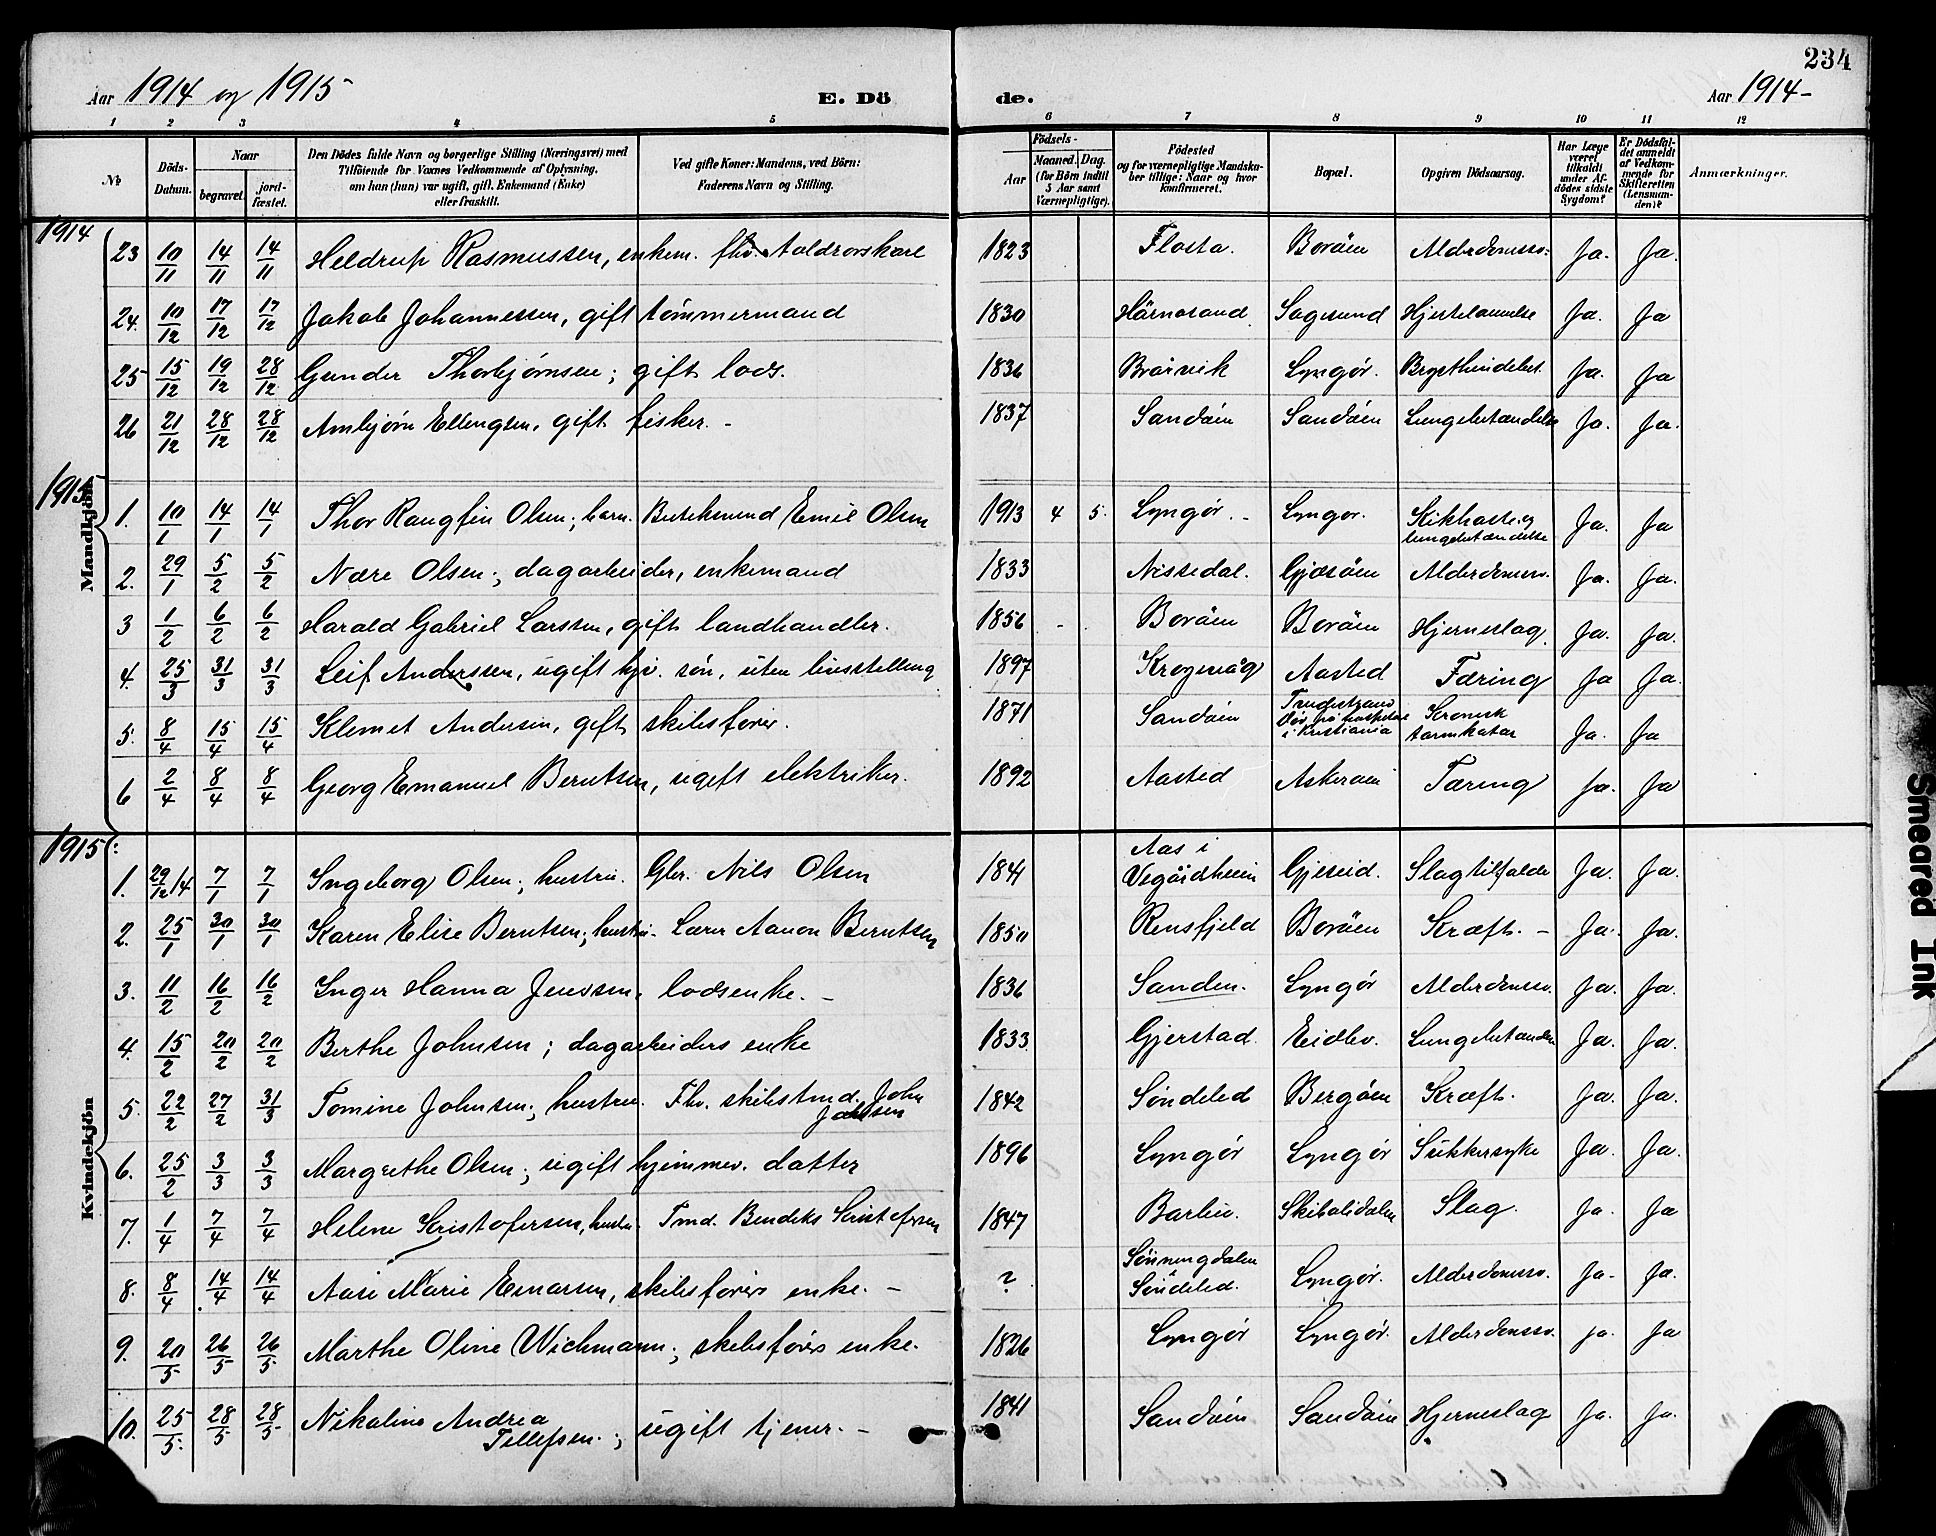 234
Aar 1914 og 1915 E. Dö de. Aar 1914-
1 2 3 4 5 6 7 8 9 10 11 12
№ Döds-Datum. Naar begravet. jord-fæstet. Den Dödes fulde Navn og borgerlige Stilling (Næringsvei) med Tilföiende for Voxnes Vedkommende af Oplysning, om han (hun) var ugift, gift, Enkemand (Enke) eller fraskilt. Ved gifte Koner: Mandens, ved Börn: Faderens Navn og Stilling. Födsels- Aar Maaned. Dag. (for Börn indtil 5 Aar samt Værnepligtige). Födested og for værnepligtige Mandskaber tillige: Naar og hvor konfirmeret. Bopæl. Opgiven Dödsaarsag. Har Læge været tilkaldt under Afdödes sidste Sygdom? Er Dödsfaldet anmeldt af Vedkommende for Skifteretten (Lensmanden)? Anmærkninger.
1914
23 10/11 14/11 14/11 Heldrup Rasmussen, enkem. fhv. toldrorskarl 1823 Flosta. Boröen Alderdomssv. Ja. Ja
24. 10/12 17/12 17/12 Jakob Johannessen, gift tömmermand 1830 Härnosand Sagesund Hjertelammelse Ja. Ja
25 15/12 19/12 28/12 Gunder Thorbjørnsen; gift lods. 1836 Lyngør. Ja. Ja
26 21/12 28/12 28/12 Arnbjörn Ellengsen, gift fisker. - 1837 Sandöen Sandöen Lungebetændelse Ja. Ja.
1915
Mandkjön
1. 10/1 14/1 14/1 Thor Rangfin Olsen; barn. Emil Olsen 1913 4 5. Lyngør. - Lyngør. Kikhoste og lungebetændelse Ja. Ja
2. 29/1 5/2 5/2 Nære Olsen; dagarbeider, enkemand 1833 Nissedal. Gjæsöen Alderdomssv. Ja. Ja.
3 1/2 6/2 6/2 Harald Gabriel Larssen, gift landhandler. 1856 - Boröen Boröen Hjerneslag. Ja. Ja.
4. 25/3 31/3 31/3 Leif Anderssen, ugift hjv. sön, uten livsstilling 1897 Aasted Tæring Ja Ja.
5. 8/4 15/4 15/4 Klemet Andersen, gift skibsfører. 1871 Sandöen Tvedestrand Dör på hospital i Kristiania Kronisk tarmkatar Ja. Ja
6 2/4 8/4 8/4 Georg Emanuel Berntsen, ugift elektriker. 1892 Aasted Askeröen Tæring Ja. Ja
1915:
Kvindekjön
1. 29/12 14 7/1 7/1 Ingeborg Olsen; hustru. Gbr. Nils Olsen 1841 Aas i Vegårdsheien Gjeseid. Slagtilfælde Ja. Ja.
2. 25/1 30/1 30/1 Karen Elise Berntsen; hustru. Lærer Aanon Berntsen 1850 Rensfjeld Boröen Kræft. - Ja. Ja.
3. 11/2 16/2 16/2 Inger Hanna Jenssen, lodsenke. - 1836 Sanden. Lyngør Alderdomssv. Ja. Ja.
4. 15/2 20/2 20/2 Berthe Johnsen; dagarbeiders enke 1833. Gjerstad. Eidbo. Lungebetændelse Ja. Ja.
5. 22/2 27/2 31/3 Tomine Johnsen; hustru. Fhv. skibstmd. John Johnsen 1842 Söndeled Bergöen Kræft. Ja. Ja.
6. 25/2 3/3 3/3 Margrethe Olsen; ugift hjemmev. datter 1896 Lyngør Lyngør Sukkersyke Ja. Ja.
7. 1/4 7/4 7/4 Helene Kristofersen, hustru. Tmd. Bendiks Kristofersen 1847 Barbu. Slag. Ja. Ja
8. 8/4 14/4 14/4 Aase Marie Enarsen, skibsførers enke. - ? Sönningdalen Söndeled. Lyngør. Alderdomssv. Ja. Ja.
9. 20/5 26/5 26/5 Marthe Oline Wichmann; skibsførers enke. 1826 Lyngør Lyngør. Alderdomssv. ja. Ja
10. 25/5 28/5 28/5 Nikoline Andrea Tellefsen.; ugift tjener. - 1841 Sandöen Sandöen Hjerneslag Ja. Ja.
Smeared Ink